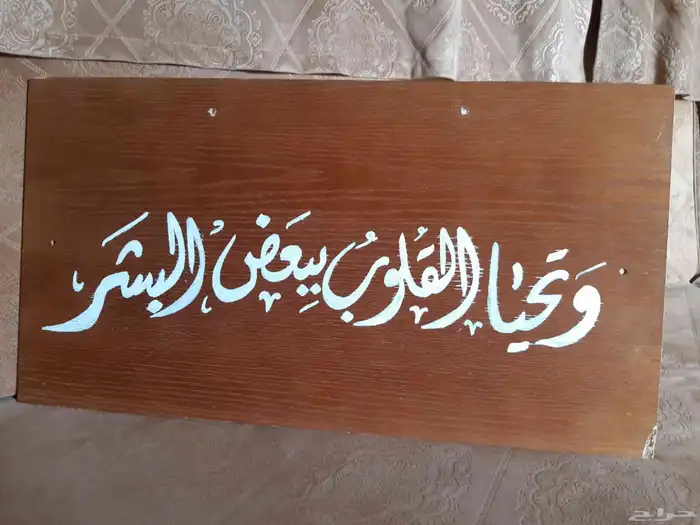 وَتحيا القلُوبُ ببِعَض الْبشَر
حراج